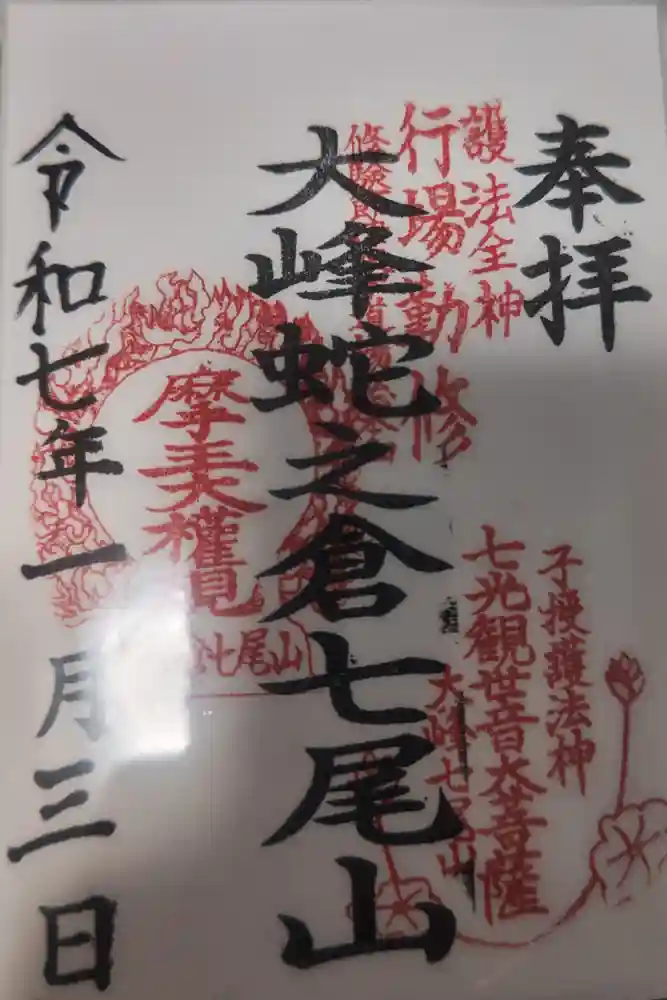 奉拝
護法全神
行場勤修
大峰蛇之倉七尾山
子授護法神
七兆観世音大菩薩
大峰七尾山
七尾山
令和七年一月三日